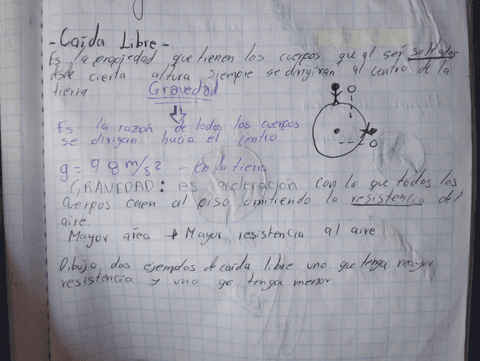 - Caída Libre -
Es la propiedad que tienen los cuerpos que al ser soltados
desde cierta altura siempre se dirigiran al centro de la
tierra
Gravedad
Es la razón de todos los cuerpos
se dirigan hacia el centro
g = 9 8 m/s² - En la tierra
GRAVEDAD: es aceleración con la que todos los
cuerpos caen al piso omitiendo la resistencia del
aire.
Mayor area → Mayor resistencia al aire
Dibuja dos ejemplos de caida libre uno que tenga mayor
resistencia y uno qe tenga menor